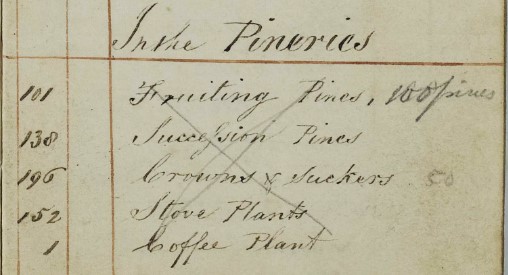 In the Pineries
101 Fruiting Pines, 100 pines
138 Succession Pines
196 Crowns & Suckers 50
152 Stove Plants
1 Coffee Plant